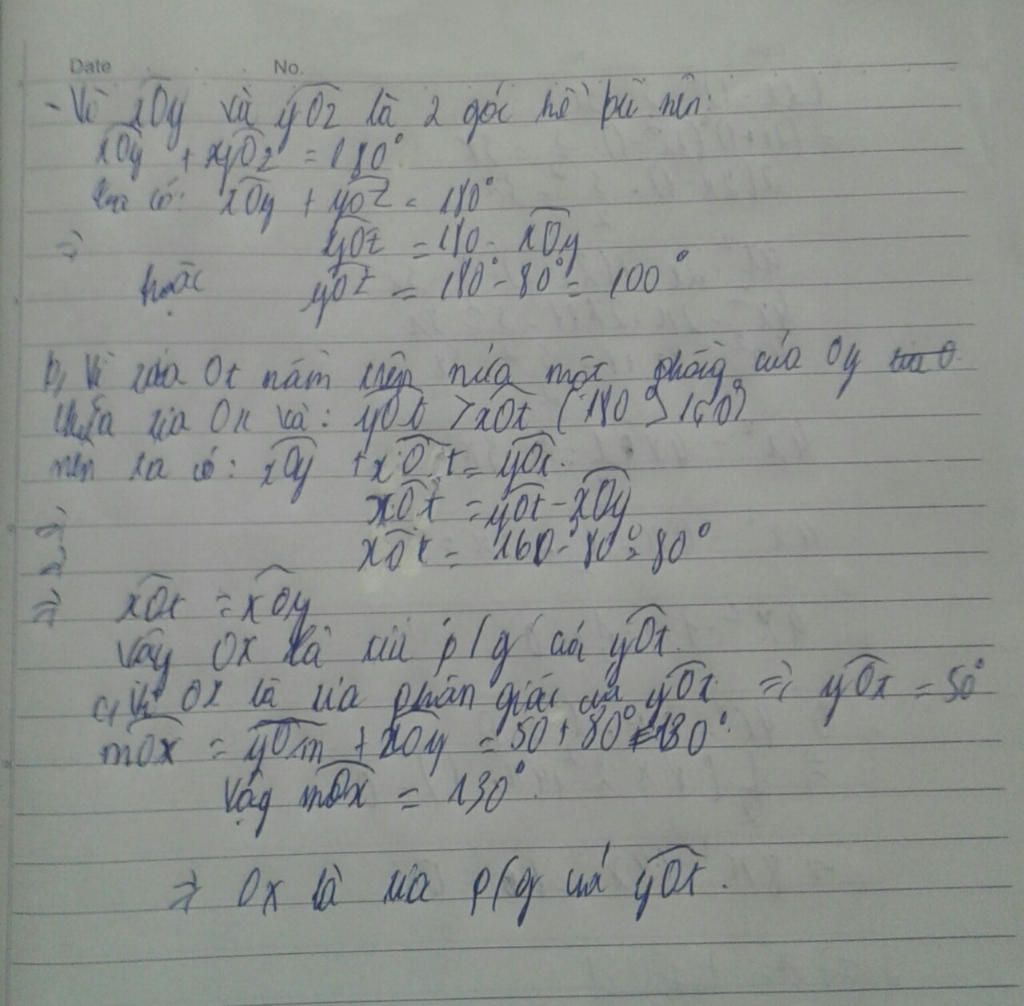 Date No.
- Vì xOy và yOz là 2 góc kề bù nên:
xOy + xyOz = 180°
ta có: xOy + yOz = 180°
⇒ yOz = 180 - xOy
hoặc yOz = 180° - 80° = 100°
b, Vì Ot nằm trên nửa mặt phẳng của Oy
chứa tia Ox và: yOt > xOt (180° > 160°)
nên ta có: xOy + xOt = yOt.
xOt = yOt - xOy
xOt = 160 - 80° = 80°
⇒ xOt = xOy
Vậy Ox là tia p/g của yOt.
c, Vì Ox là tia phân giác của yOt ⇒ = 50°
mOx = yOm + xOy = 50 + 80° = 130°.
Vậy mOx = 130°.
⇒ Ox là tia p/g của yOt.